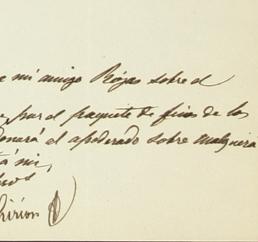 e mi amigo Rojas sobre el
e por el paquete de fines de los
donará el apoderado sobre cualquiera
tá mi,
esos
Chirion